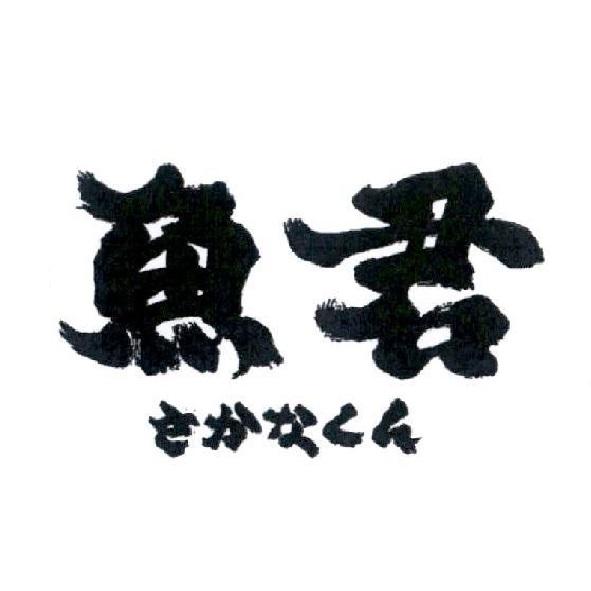 魚君
さかなくん